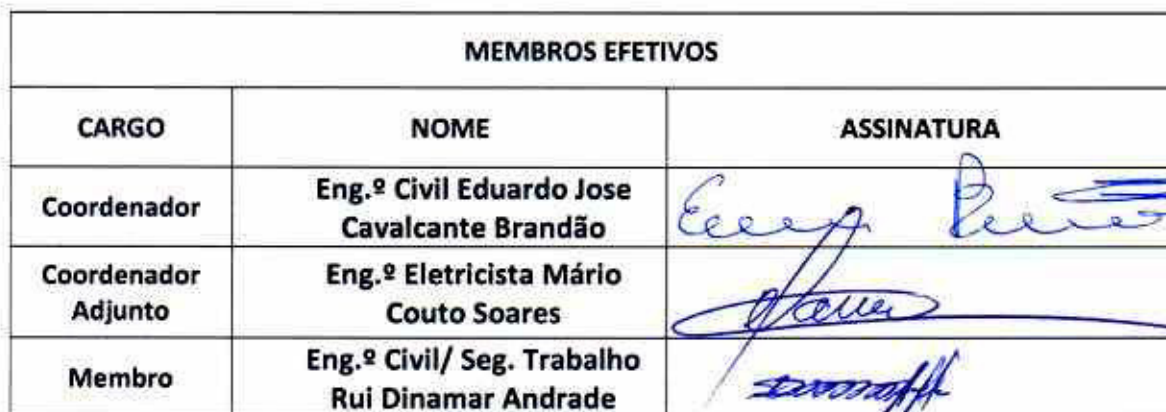 MEMBROS EFETIVOS
CARGO NOME ASSINATURA
Coordenador Eng.º Civil Eduardo Jose
Cavalcante Brandão
Coordenador Eng.º Eletricista Mário
Adjunto Couto Soares
Membro Eng.º Civil/ Seg. Trabalho
Rui Dinamar Andrade